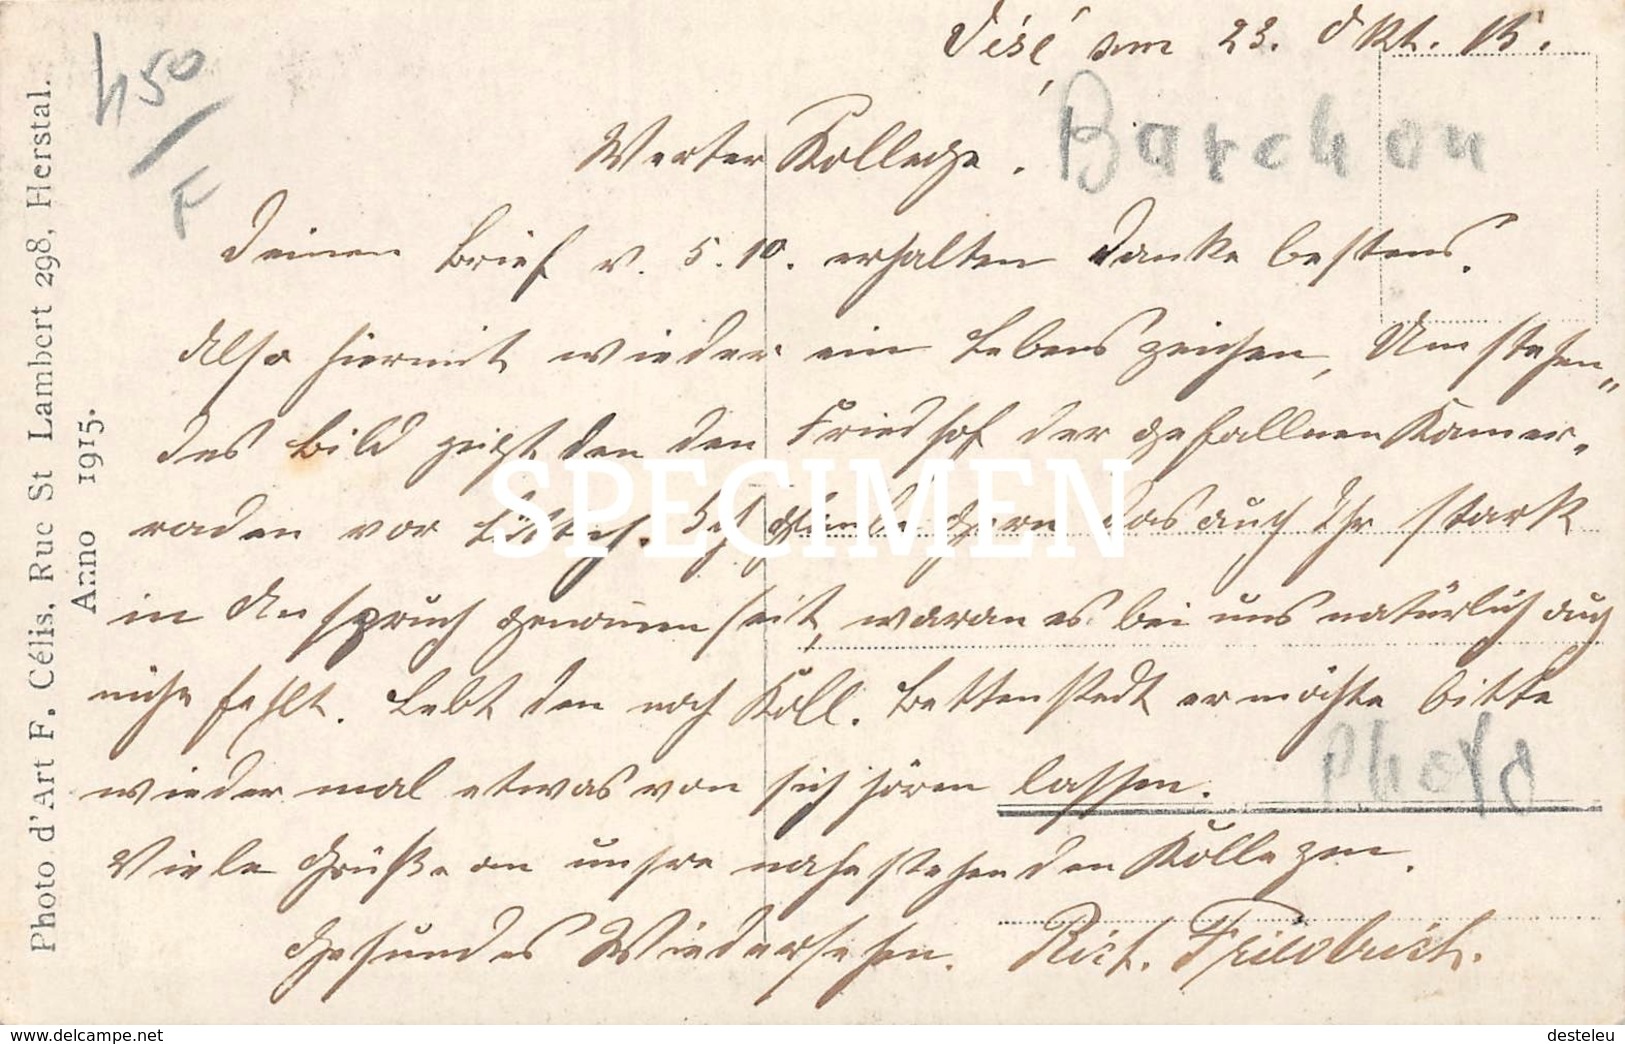 Visé, am 23. Okt. 15.
450
F
Barchon
Werter Kollege.
Deinen Brief v. 5.10. erhalten Danke bestens.
Also hiermit wieder ein Lebenszeichen, Umstehen„
des Bild zeigt den den Friedhof der gefallnen Kamer„
raden vor Lüttich. Ich glaube gern das auch Ihr stark
in Anspruch genomen seit, waran es bei uns natürlich auch
nicht fehlt. Lebt den noch Koll. Bettenstedt er möchte bitte
wieder mal etwas von sich hören lassen.
Photo
Viele Grüße an unsre nahestehenden Kollegen.
Gesundes Wiedersehen. Rich. Friedrich.
Photo d'Art F. Célis, Rue St Lambert 298, Herstal.
Anno 1915.
SPECIMEN
www.delcampe.net
desteleu